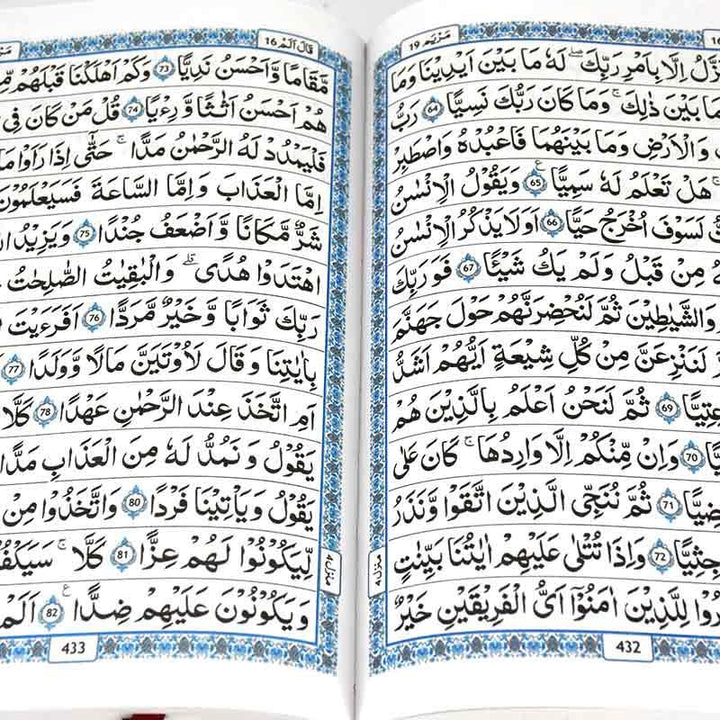 مَرْيَم 19
نَزَّلُ اِلَّا بِاَمْرِ رَبِّكَ ۚ لَهٗ مَا بَيْنَ اَيْدِيْنَا وَمَا
مَا بَيْنَ ذٰلِكَ ۚ وَمَا كَانَ رَبُّكَ نَسِيًّا 64 رَبُّ
وَالْاَرْضِ وَمَا بَيْنَهُمَا فَاعْبُدْهُ وَاصْطَبِرْ
هَلْ تَعْلَمُ لَهٗ سَمِيًّا 65 وَيَقُوْلُ الْاِنْسَانُ
لَسَوْفَ اُخْرَجُ حَيًّا 66 اَوَلَا يَذْكُرُ الْاِنْسَانُ
مِنْ قَبْلُ وَلَمْ يَكُ شَيْـًٔا 67 فَوَرَبِّكَ
وَالشَّيٰطِيْنَ ثُمَّ لَنُحْضِرَنَّهُمْ حَوْلَ جَهَنَّمَ
لَنَنْزِعَنَّ مِنْ كُلِّ شِيْعَةٍ اَيُّهُمْ اَشَدُّ
عِتِيًّا 69 ثُمَّ لَنَحْنُ اَعْلَمُ بِالَّذِيْنَ هُمْ
70 وَاِنْ مِّنْكُمْ اِلَّا وَارِدُهَا ۚ كَانَ عَلٰى
71 ثُمَّ نُنَجِّى الَّذِيْنَ اتَّقَوْا وَّنَذَرُ
جِثِيًّا 72 وَاِذَا تُتْلٰى عَلَيْهِمْ اٰيٰتُنَا بَيِّنٰتٍ
لِلَّذِيْنَ اٰمَنُوْٓا اَىُّ الْفَرِيْقَيْنِ خَيْرٌ
منزل ٤
432
قَالَ اَلَمْ 16
مَّقَامًا وَّاَحْسَنُ نَدِيًّا 73 وَكَمْ اَهْلَكْنَا قَبْلَهُمْ
هُمْ اَحْسَنُ اَثَاثًا وَّرِءْيًا 74 قُلْ مَنْ كَانَ فِى
فَلْيَمْدُدْ لَهُ الرَّحْمٰنُ مَدًّا ۚ حَتّٰٓى اِذَا رَاَوْا مَا
اِمَّا الْعَذَابَ وَاِمَّا السَّاعَةَ فَسَيَعْلَمُوْنَ
شَرٌّ مَّكَانًا وَّاَضْعَفُ جُنْدًا 75 وَيَزِيْدُ
اهْتَدَوْا هُدًى ۗ وَالْبٰقِيٰتُ الصّٰلِحٰتُ
رَبِّكَ ثَوَابًا وَّخَيْرٌ مَّرَدًّا 76 اَفَرَءَيْتَ
بِاٰيٰتِنَا وَقَالَ لَاُوْتَيَنَّ مَالًا وَّوَلَدًا 77
اَمِ اتَّخَذَ عِنْدَ الرَّحْمٰنِ عَهْدًا 78 كَلَّا
يَقُوْلُ وَنَمُدُّ لَهٗ مِنَ الْعَذَابِ مَدًّا
يَقُوْلُ وَيَاْتِيْنَا فَرْدًا 80 وَاتَّخَذُوْا مِنْ
لِّيَكُوْنُوْا لَهُمْ عِزًّا 81 كَلَّا ۚ
وَيَكُوْنُوْنَ عَلَيْهِمْ ضِدًّا 82 اَلَمْ
منزل ٤
433